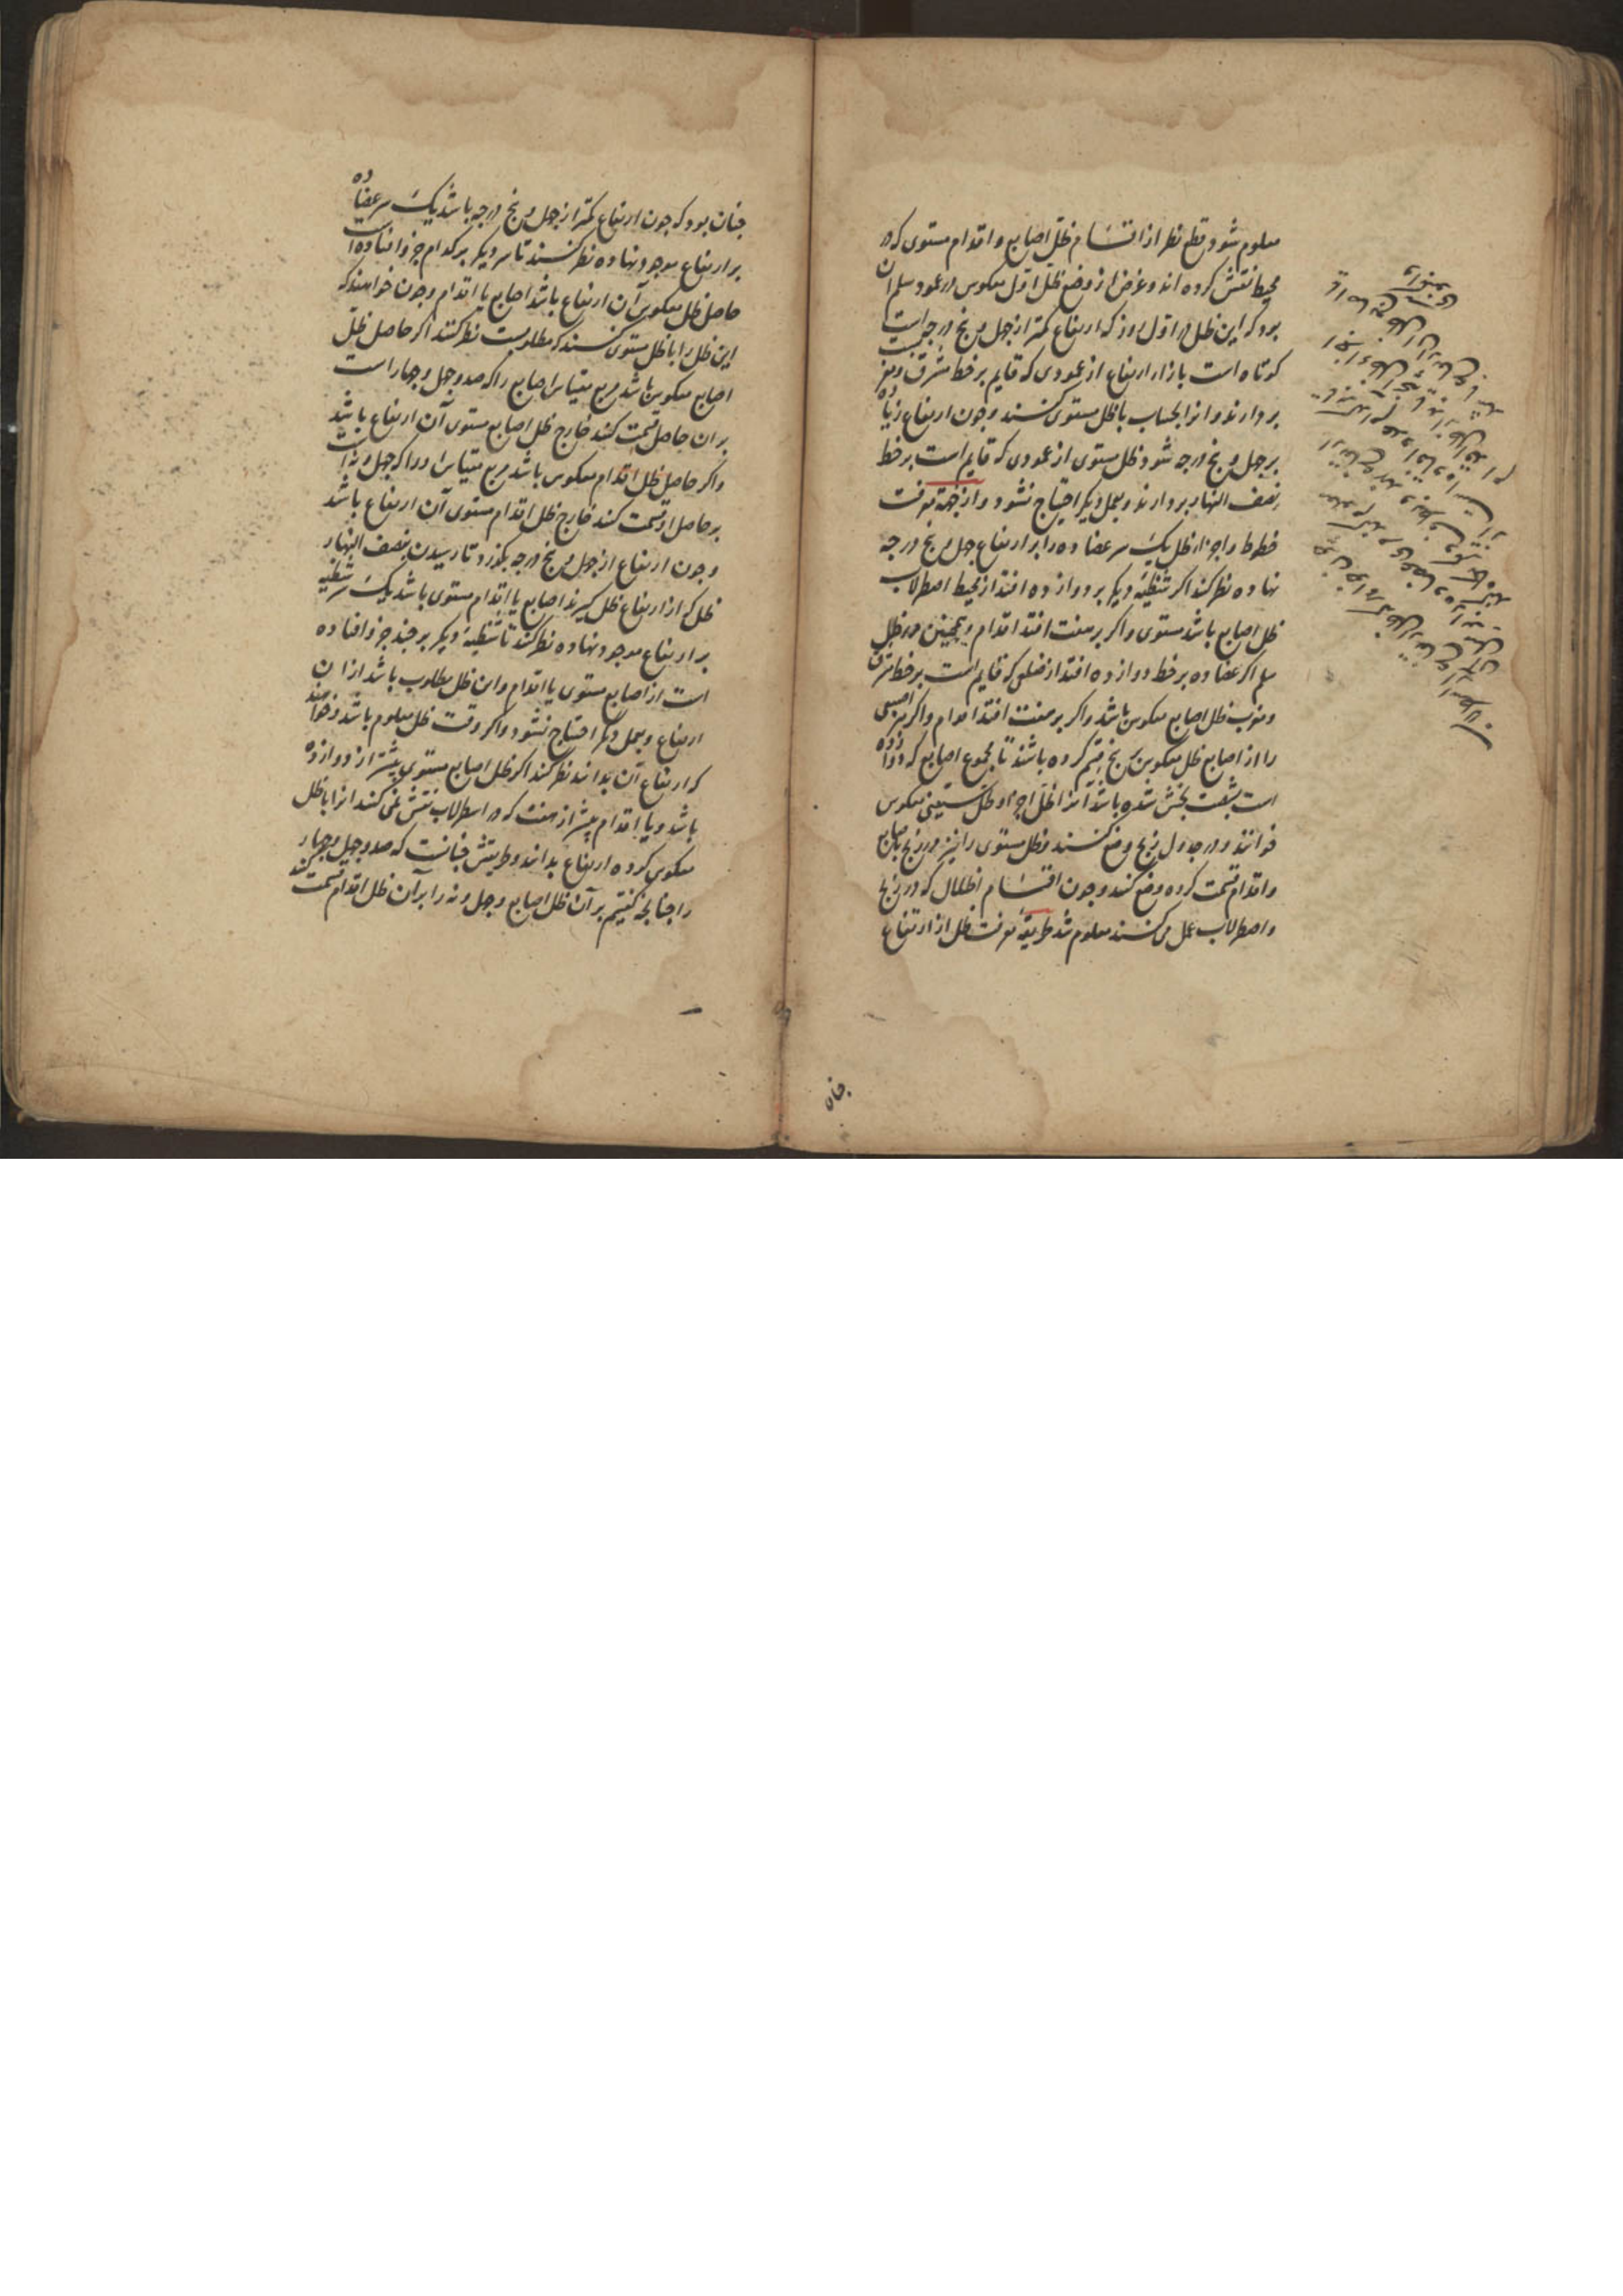 معلوم شود قطع نظر از اقسام ظل اصابع و اقدام مستوی که در
محیط نقش کرده اند و غرض از وضع ظل اول معکوس در عمود سلم آن
بود که این ظل در اول روز که ارتفاع کمتر از چهل و پنج درجه است
کوتاه است بازاء ارتفاع از عمودی که قایم بر خط مشرق و مغربست
بردارند و انرا بحساب با ظل مستوی کنند و چون ارتفاع زیاده
بر چهل و پنج درجه شود ظل مستوی از عمودی که قایم است بر خط
نصف النهار بردارند و بعمل دیگر احتیاج نشود و از جهة معرفت
خطوط و اجزاء ظل یک سر عضاده را بر ارتفاع چهل و پنج درجه
نهاده نظر کند اگر شظیهٔ دیگر بر دوازده افتد از محیط اصطرلاب
ظل اصابع باشد مستوی و اگر بر هفت افتد اقدام و همچنین در ظل
سلم اگر عضاده بر خط دوازده افتد از ضلعی که قایم است بر خط مشرق
و مغرب ظل اصابع معکوس باشد و اگر بر هفت افتد اقدام و اگر هر اصبعی
را از اصابع ظل معکوس به پنج قسم کرده باشند تا مجموع اصابع که دوازده
است بشصت بخش شده باشد آنرا ظل اجزا و ظل ستینی معکوس
خوانند و در جدول زیج وضع کنند و ظل مستوی را نیز در زیج باصابع
و اقدام قسمت کرده وضع کنند و چون اقسام اظلال که در زیج
و اصطرلاب عمل می کنند معلوم شد طریقهٔ معرفت ظل از ارتفاع
چنان
چنان بود که چون ارتفاع کمتر از چهل و پنج درجه باشد یک سر عضاده
بر ارتفاع موجود نهاده نظر کنند تا سر دیگر بر کدام جزو افتاده است
حاصل ظل معکوس آن ارتفاع باشد اصابع یا اقدام و چون خواهند که
این ظل را با ظل مستوی کنند که مطلوبست نظر کنند اگر حاصل ظل
اصابع معکوس باشد مربع مقیاس اصابع را که صد و چهل و چهار است
بران حاصل قسمت کند خارج ظل اصابع مستوی آن ارتفاع باشد
و اگر حاصل ظل اقدام معکوس باشد مربع مقیاس او را که چهل و نه است
بر حاصل او قسمت کند خارج ظل اقدام مستوی آن ارتفاع باشد
و چون ارتفاع از چهل و پنج درجه بگذرد تا رسیدن بنصف النهار
ظل که از ارتفاع ظل گیرند اصابع یا اقدام مستوی باشد یک سر شظیه
بر ارتفاع موجود نهاده نظر کند تا شظیهٔ دیگر بر چند جزو افتاده
است از اصابع مستوی یا اقدام و ان ظل مطلوب باشد از ان
ارتفاع و بعمل دیگر احتیاج نشود و اگر وقت ظل معلوم باشد و خواهند
که ارتفاع آن بدانند نظر کند اگر ظل اصابع مستوی بیشتر از دوازده
باشد و یا اقدام بیش از هفت که در اسطرلاب نقش نمی کنند انرا با ظل
معکوس کرده ارتفاع بدانند و طریقش چنانست که صد و چهل و چهار
را چنانچه گفتیم بر آن ظل اصابع و چهل و نه را بر آن ظل اقدام قسمت کند